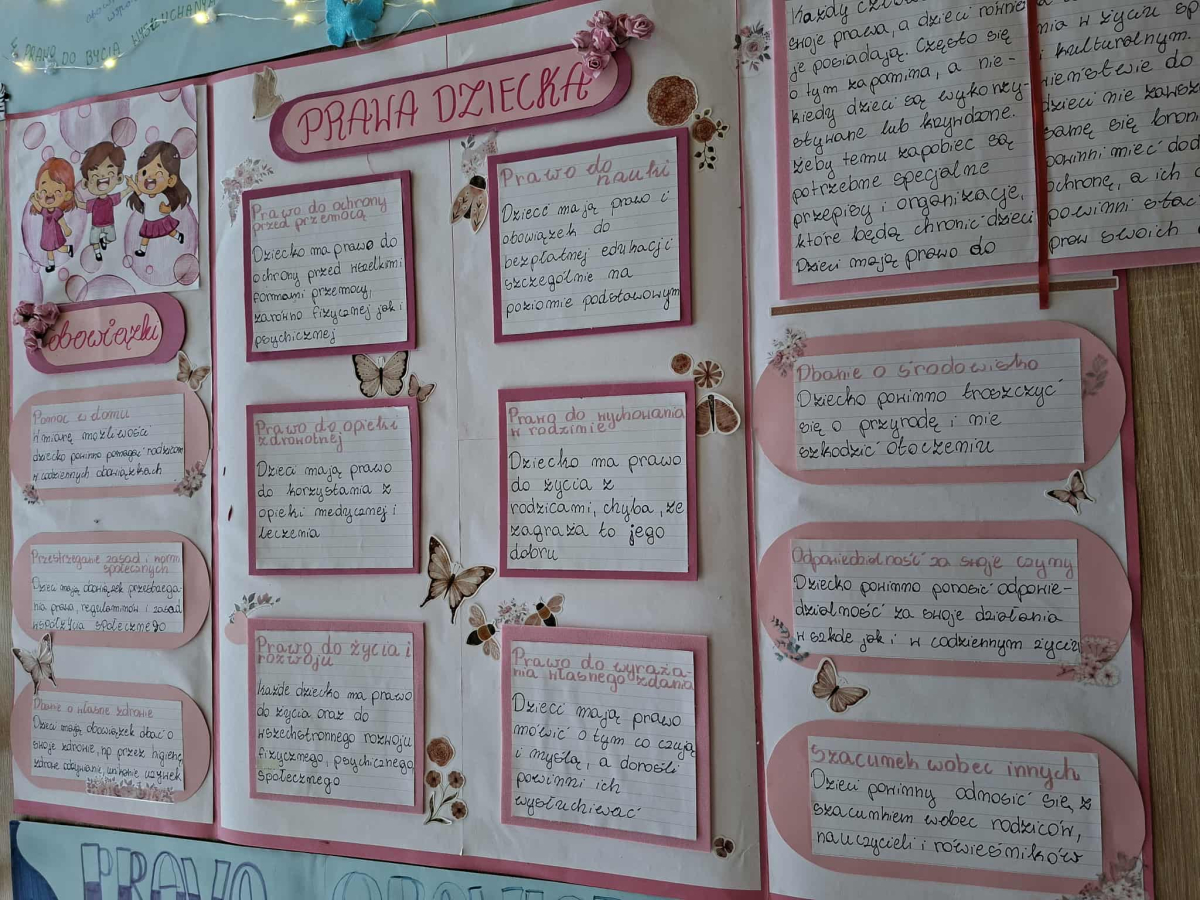 PRAWO DO BYCIA WYSŁUCHANYM
PRAWA DZIECKA
obowiązki
Pomoc w domu
W miarę możliwości
dziecko powinno pomagać rodzicom
w codziennych obowiązkach
Przestrzeganie zasad i norm
społecznych
Dzieci mają obowiązek przestrzega-
nia prawa, regulaminów i zasad
współżycia społecznego
Dbanie o własne zdrowie
Dzieci mają obowiązek dbać o
swoje zdrowie, np przez higienę,
zdrowe odżywianie, unikanie używek
Prawo do ochrony
przed przemocą
Dziecko ma prawo do
ochrony przed wszelkimi
formami przemocy,
zarówno fizycznej jak i
psychicznej
Prawo do opieki
zdrowotnej
Dzieci mają prawo
do korzystania z
opieki medycznej i
leczenia
Prawo do życia i
rozwoju
Każde dziecko ma prawo
do życia oraz do
wszechstronnego rozwoju
fizycznego, psychicznego
społecznego
Prawo do
nauki
Dzieci mają prawo i
obowiązek do
bezpłatnej edukacji
szczególnie na
poziomie podstawowym
Prawo do wychowania
w rodzinie
Dziecko ma prawo
do życia z
rodzicami, chyba, że
zagraża to jego
dobru
Prawo do wyraża-
nia własnego zdania
Dzieci mają prawo
mówić o tym co czują
i myślą, a dorośli
powinni ich
wysłuchiwać
Każdy
swoje prawa, a dzieci również
je posiadają. Często się
o tym zapomina, a nie-
kiedy dzieci są wykorzy-
stywane lub krzywdzone.
Żeby temu zapobiec są
potrzebne specjalne
przepisy i organizacje,
które będą chronić dzieci
Dzieci mają prawo do
w życiu
i kulturalnym.
do
dzieci nie
same się
powinni mieć
ochronę, a ich
powinni
praw swoich
Dbanie o środowisko
Dziecko powinno troszczyć
się o przyrodę i nie
szkodzić otoczeniu
Odpowiedzialność za swoje czyny
Dziecko powinno ponosić odpowie-
dzialność za swoje działania
w szkole jak i w codziennym życiu
Szacunek wobec innych
Dzieci powinny odnosić się z
szacunkiem wobec rodziców,
nauczycieli i rówieśników
PRAWO